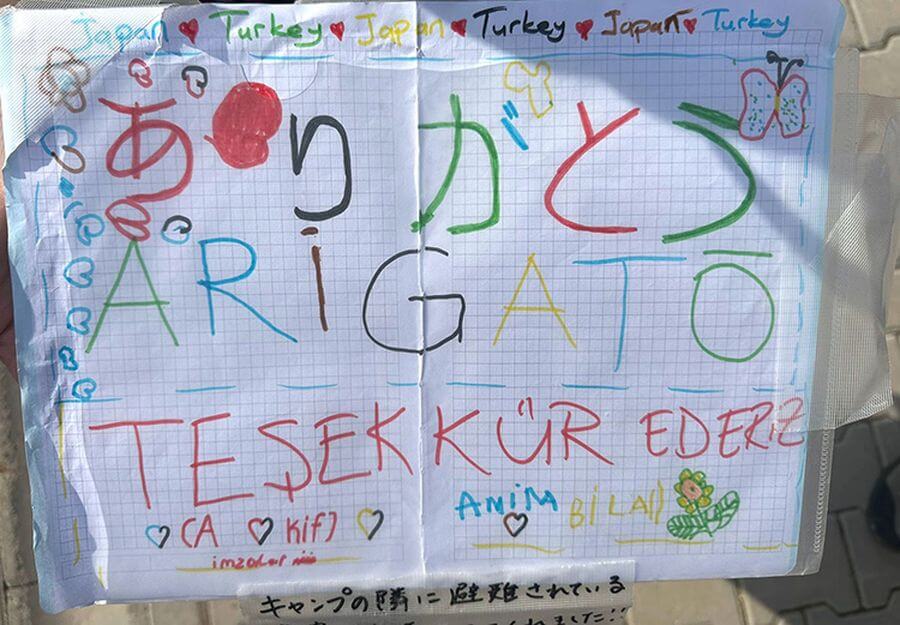 Japan ♥ Turkey ♥ Japan ♥ Turkey ♥ Japan ♥ Turkey
ありがとう
ARİGATŌ
TEŞEKKÜR EDERİZ
AMİNA BİLAL
imzalar
キャンプの隣に避難されている
くれました!!